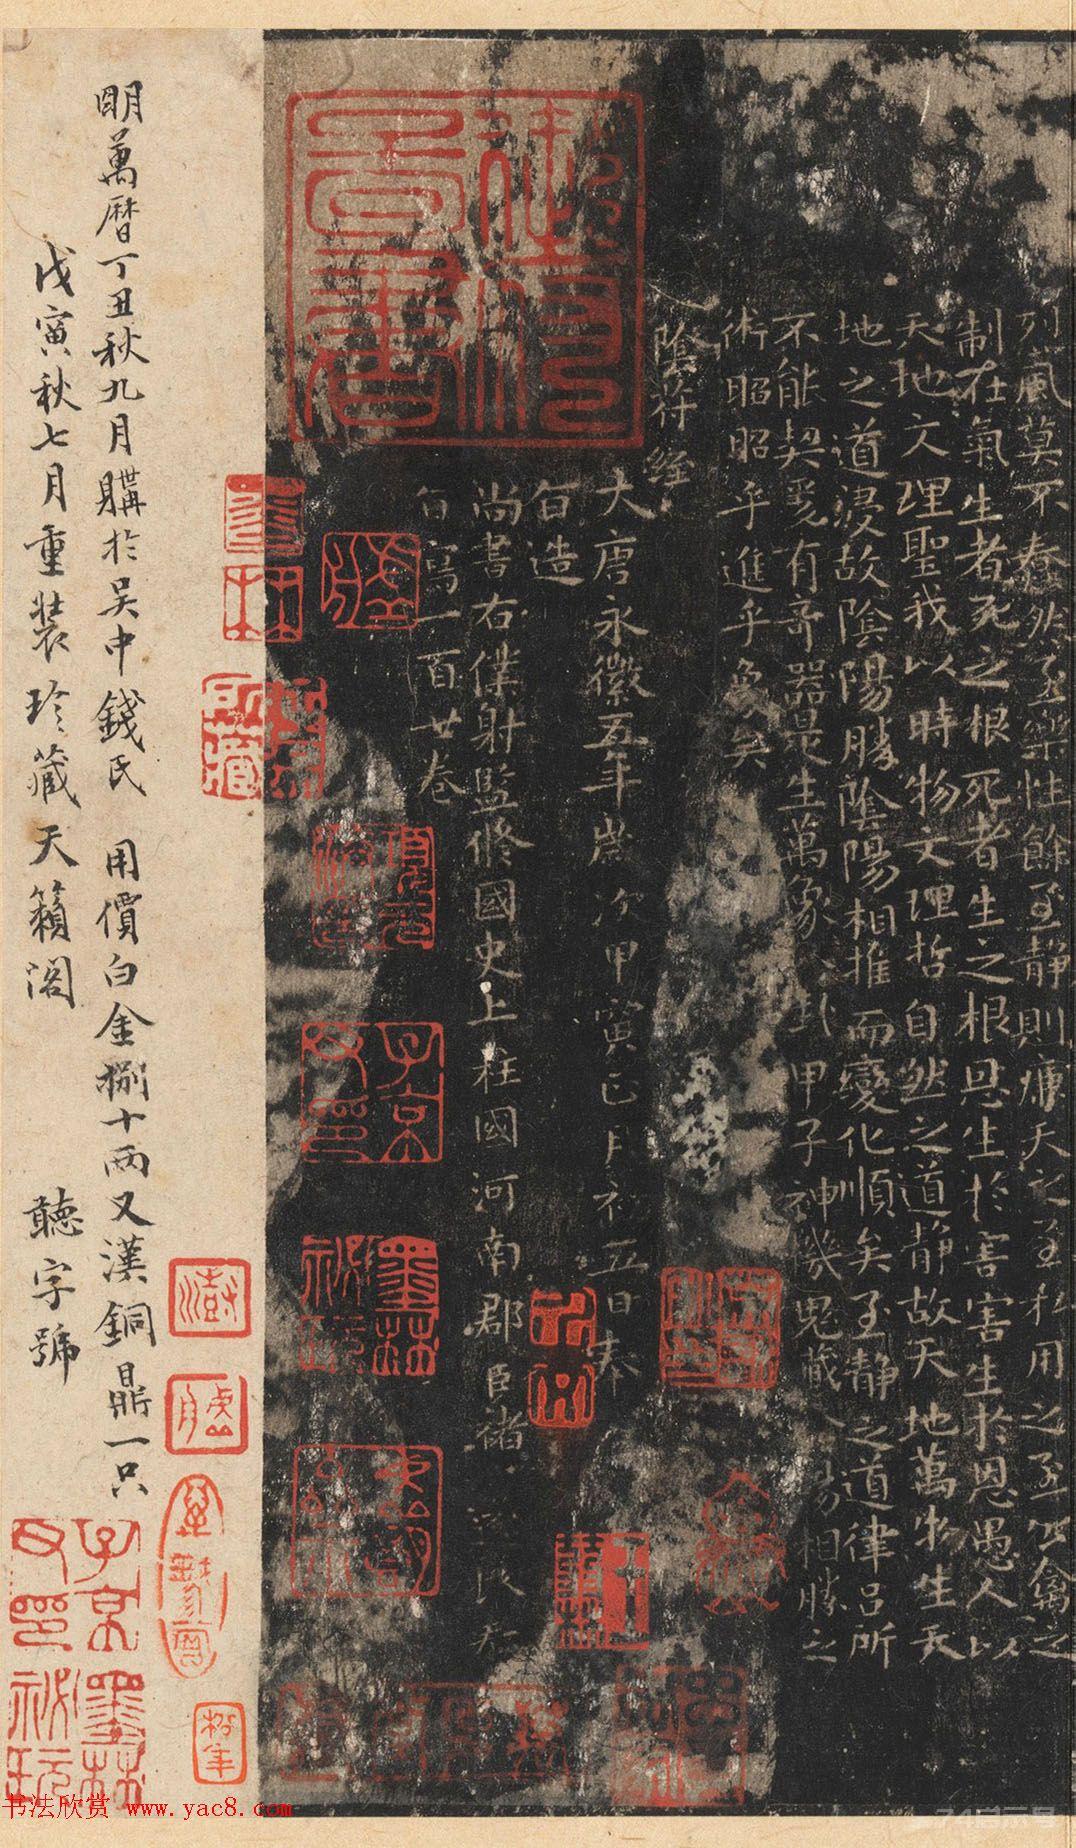 列風莫不蠢然至樂性餘至静則㢘天之至私用之至公禽之
制在氣生者死之根死者生之根恩生於害害生於恩愚人以
天地文理聖我以時物文理哲自然之道静故天地萬物生天
地之道浸故陰陽勝陰陽相推而變化順矣至静之道律吕所
不能契爰有奇器是生萬象八卦甲子神機鬼藏陰陽相勝之
術昭昭乎進乎象矣
陰符經
大唐永徽五年歲次甲寅正月初五日奉
旨造
尚書右僕射監修國史上柱國河南郡臣褚遂良奉
旨寫一百廿卷
明萬曆丁丑秋九月購於吴中錢氏 用價白金捌十兩又漢銅鼎一只
戊寅秋七月重裝珍藏天籟閣 聽字號
子京父印
墨林祕玩
子京父印
墨林祕玩
书法欣赏 www.yac8.com